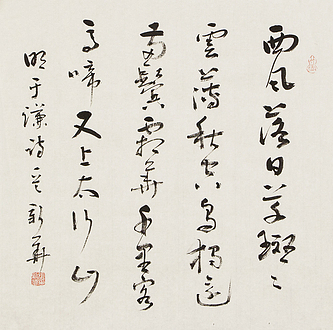 西風落日草斑〻
雲薄秋空鳥獨還
兩鬢霜華千里客
馬啼又上太行山
明于謙詩 新華